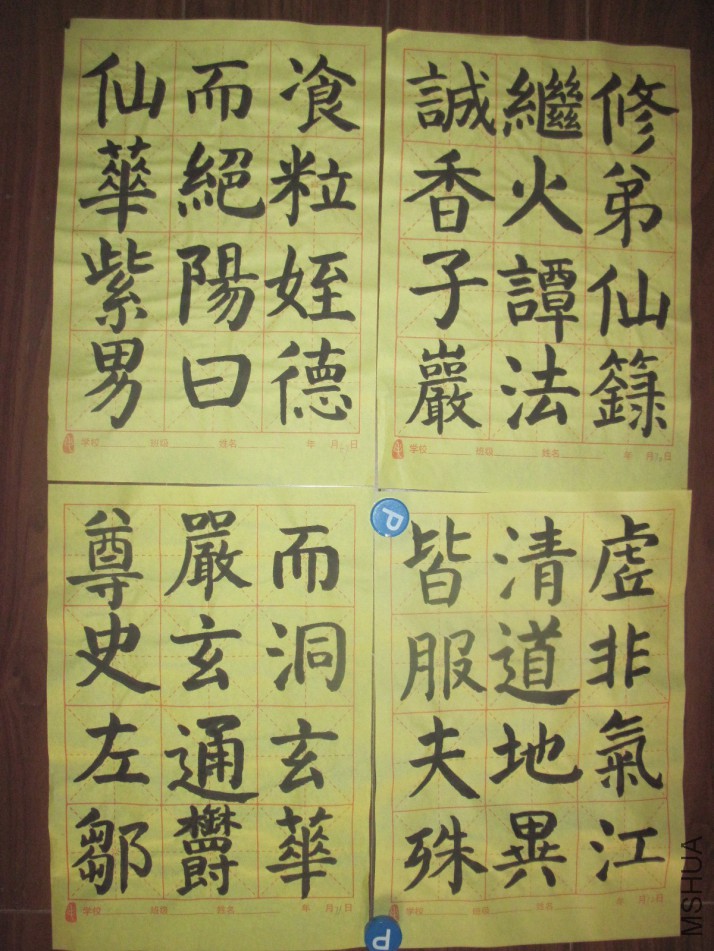 修弟仙籙
繼火譚法
誠香子嚴
学校 班级 姓名 年 月 日
飡粒姪德
而絕陽曰
仙華紫男
学校 班级 姓名 年 月 日
虛非氣江
清道地異
皆服夫殊
学校 班级 姓名 年 月 日
而洞玄華
嚴玄通欝
尊史左鄒
学校 班级 姓名 年 月 日
P
P
MSHUA